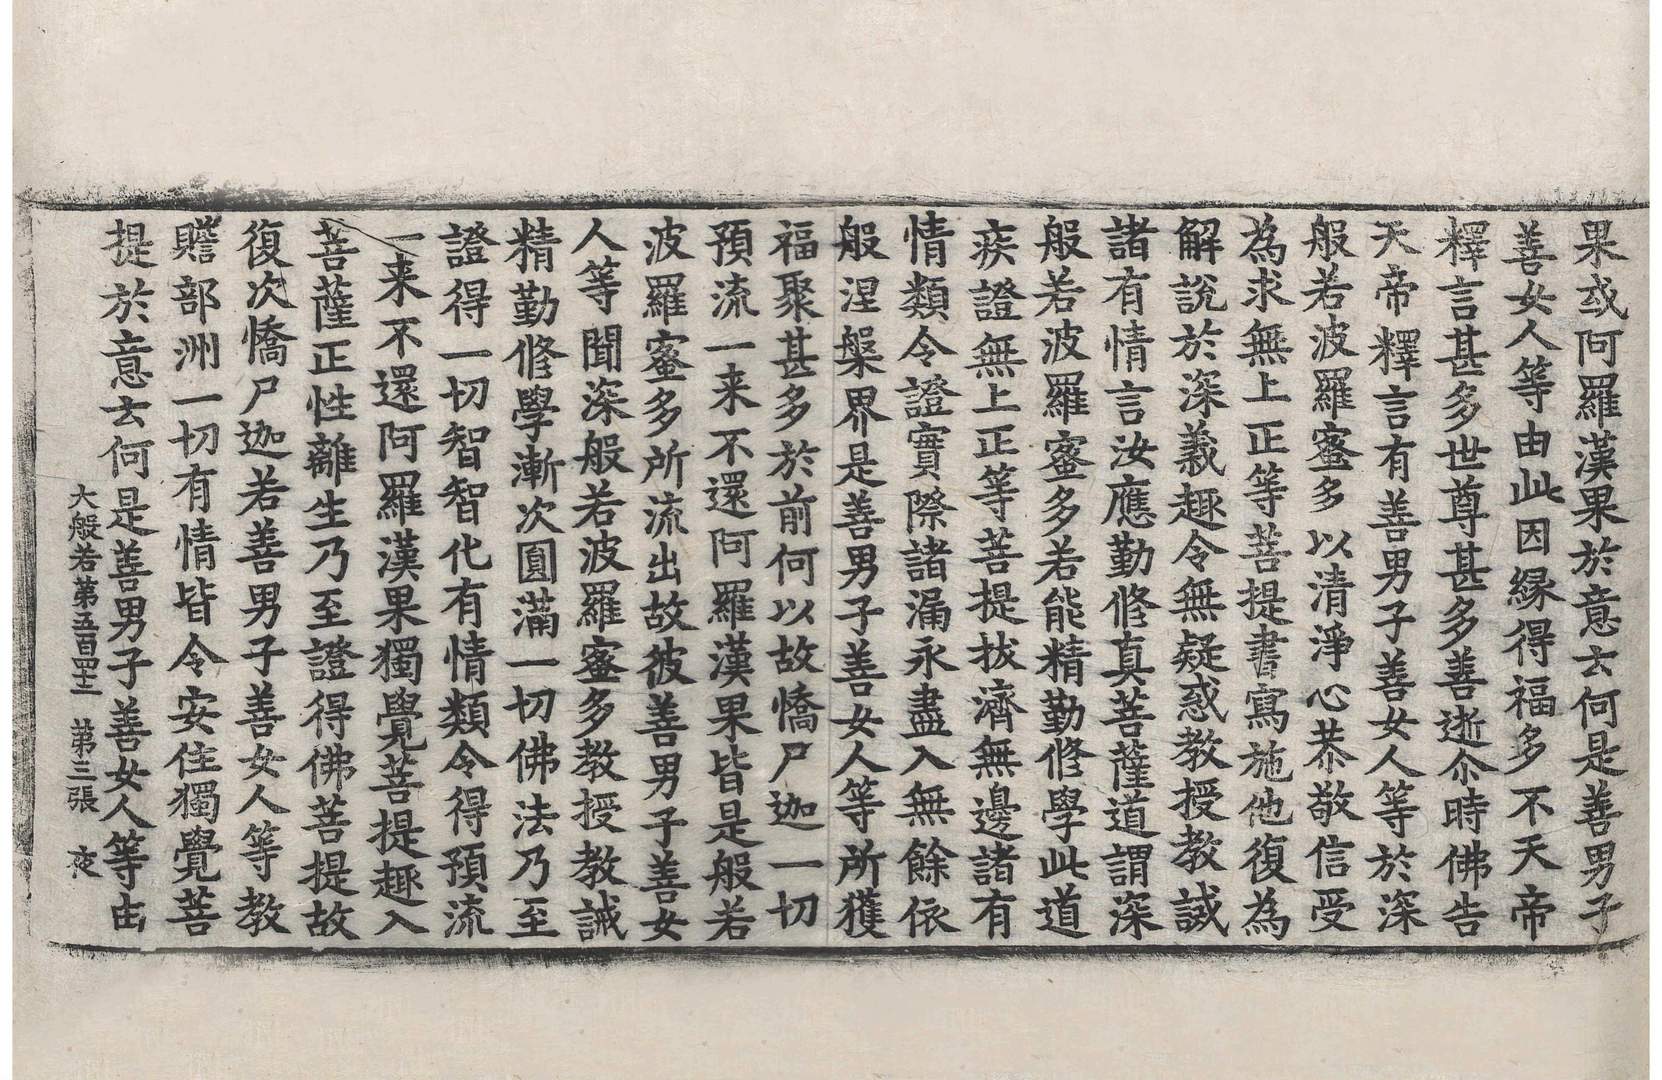 果或阿羅漢果於意云何是善男子
善女人等由此因緣得福多不天帝
釋言甚多世尊甚多善逝尒時佛告
天帝釋言有善男子善女人等於深
般若波羅蜜多以清淨心恭敬信受
為求無上正等菩提書寫施他復為
解說於深義趣令無疑惑教授教誡
諸有情言汝應勤修真菩薩道謂深
般若波羅蜜多若能精勤修學此道
疾證無上正等菩提拔濟無邊諸有
情類令證實際諸漏永盡入無餘依
般涅槃界是善男子善女人等所獲
福聚甚多於前何以故憍尸迦一切
預流一来不還阿羅漢果皆是般若
波羅蜜多所流出故彼善男子善女
人等聞深般若波羅蜜多教授教誡
精勤修學漸次圓滿一切佛法乃至
證得一切智智化有情類令得預流
一来不還阿羅漢果獨覺菩提趣入
菩薩正性離生乃至證得佛菩提故
復次憍尸迦若善男子善女人等教
贍部洲一切有情皆令安住獨覺菩
提於意云何是善男子善女人等由
大般若第五百四十二 第三張 夜